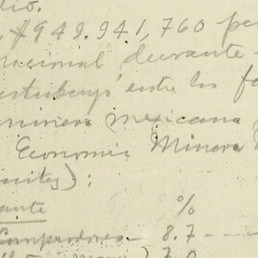 dio.
$949.941,760 pe
nasional durante
estubuyó entre los fa
minera mexicana
Economic Minera
unites):
ante
%
Compradores - 8.7 - - -
7.0